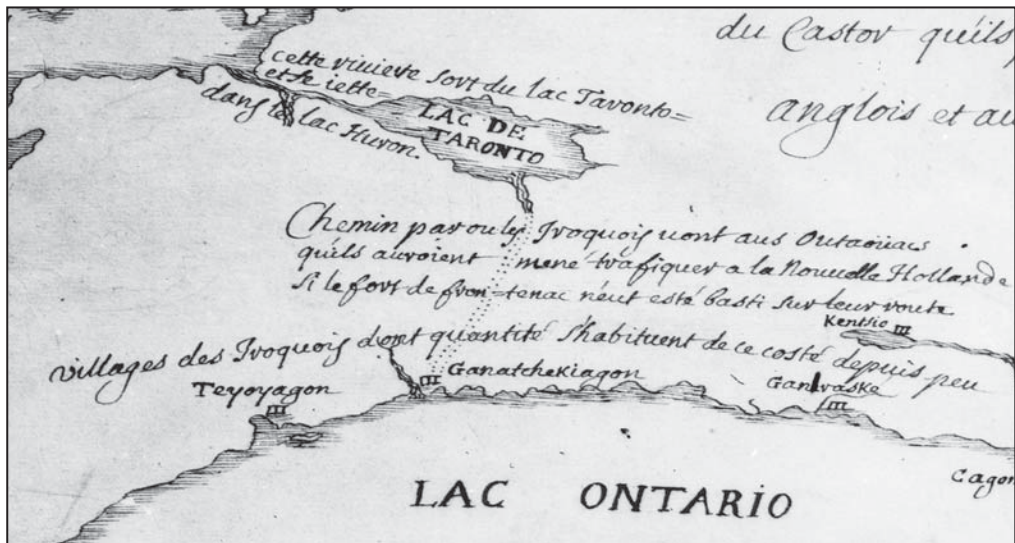 du Castor qu'ils
anglois et au
cette riviere sort du lac Taronto=
et se iette=
dans le lac Huron.
LAC DE
TARONTO
Chemin par ou les Iroquois vont aus Outaoüacs
qu'ils auroient mené trafiquer a la Nouvelle Hollande
si le fort de fron=tenac n'eut esté basti sur leur route
Kentsio
villages des Iroquois dont quantité s'habituent de ce costé depuis peu
Teyoyagon
Ganatchekiagon
Ganevaske
Cagon
LAC ONTARIO